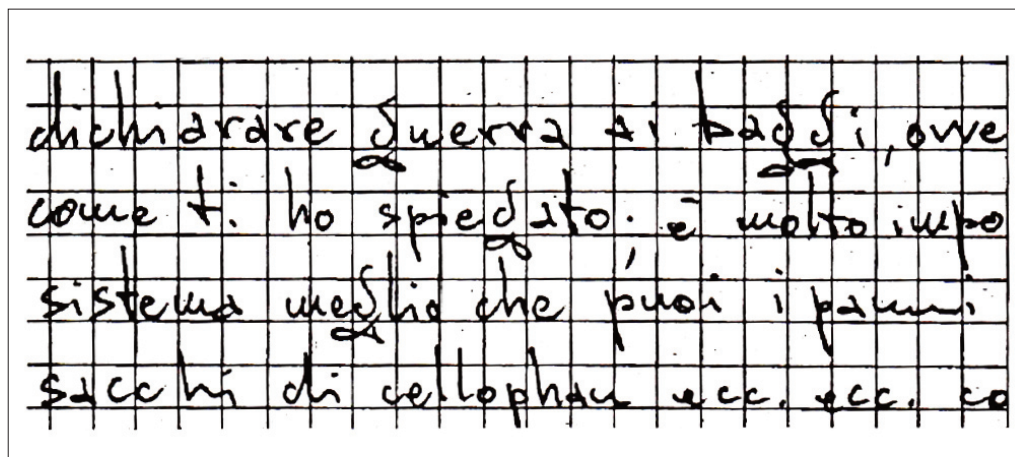 dichiarare guerra ai baggi, ovve
come ti ho spiegato; è molto impo
sistema meglio che puoi i panni
sacchi di cellophan ecc. ecc. co